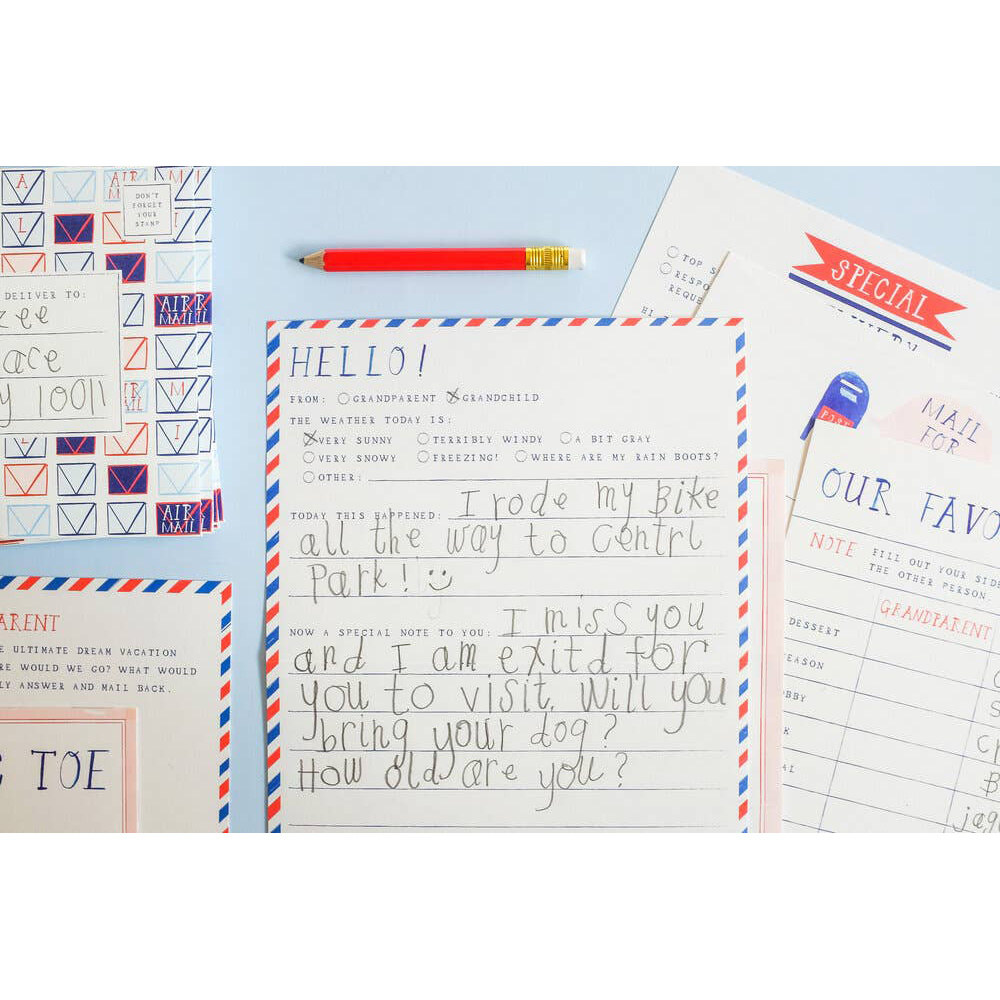 A
AIR
M
M
L
DON'T
FORGET
YOUR
STAMP
DELIVER TO:
ace
10011
AIR
MAIL
M
I
AIR
MAIL
SPECIAL
TOP
HELLO!
FROM: GRANDPARENT GRANDCHILD
THE WEATHER TODAY IS:
VERY SUNNY TERRIBLY WINDY A BIT GRAY
VERY SNOWY FREEZING! WHERE ARE MY RAIN BOOTS?
OTHER:
TODAY THIS HAPPENED: I rode my Bike
all the way to Centrl
Park! :)
NOW A SPECIAL NOTE TO YOU: I miss you
and I am exitd for
you to visit. Will you
bring your dog?
How old are you?
THE ULTIMATE DREAM VACATION
WOULD WE GO? WHAT WOULD
ANSWER AND MAIL BACK.
TOE
POST
MAIL
FOR
OUR
NOTE FILL OUT YOUR SIDE
THE OTHER PERSON.
GRANDPARENT
DESSERT